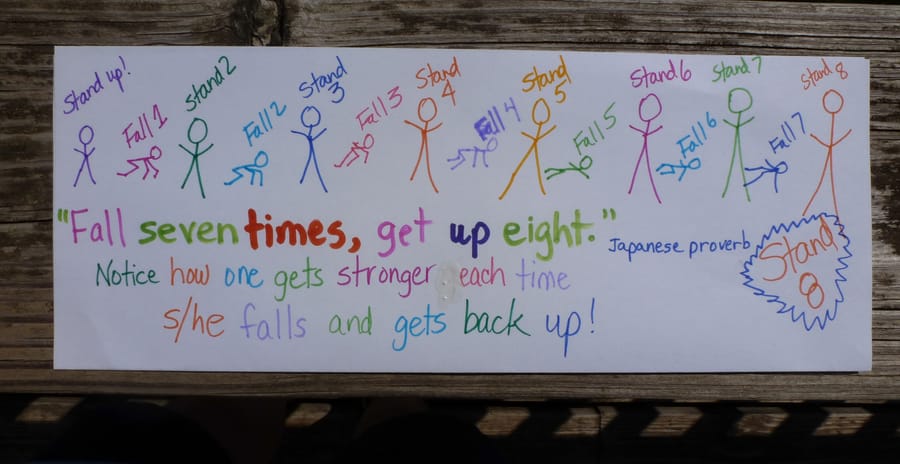 Stand up!
Fall 1
Stand 2
Fall 2
Stand 3
Fall 3
Stand 4
Fall 4
Stand 5
Fall 5
Stand 6
Fall 6
Stand 7
Fall 7
Stand 8
"Fall seven times, get up eight."
Japanese proverb
Stand 8
Notice how one gets stronger each time
s/he falls and gets back up!